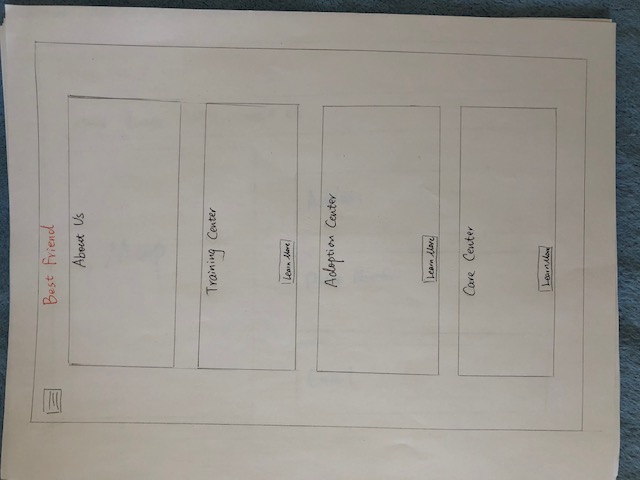 Best Friend
About Us
Training Center
Learn More
Adoption Center
Learn More
Care Center
Learn More